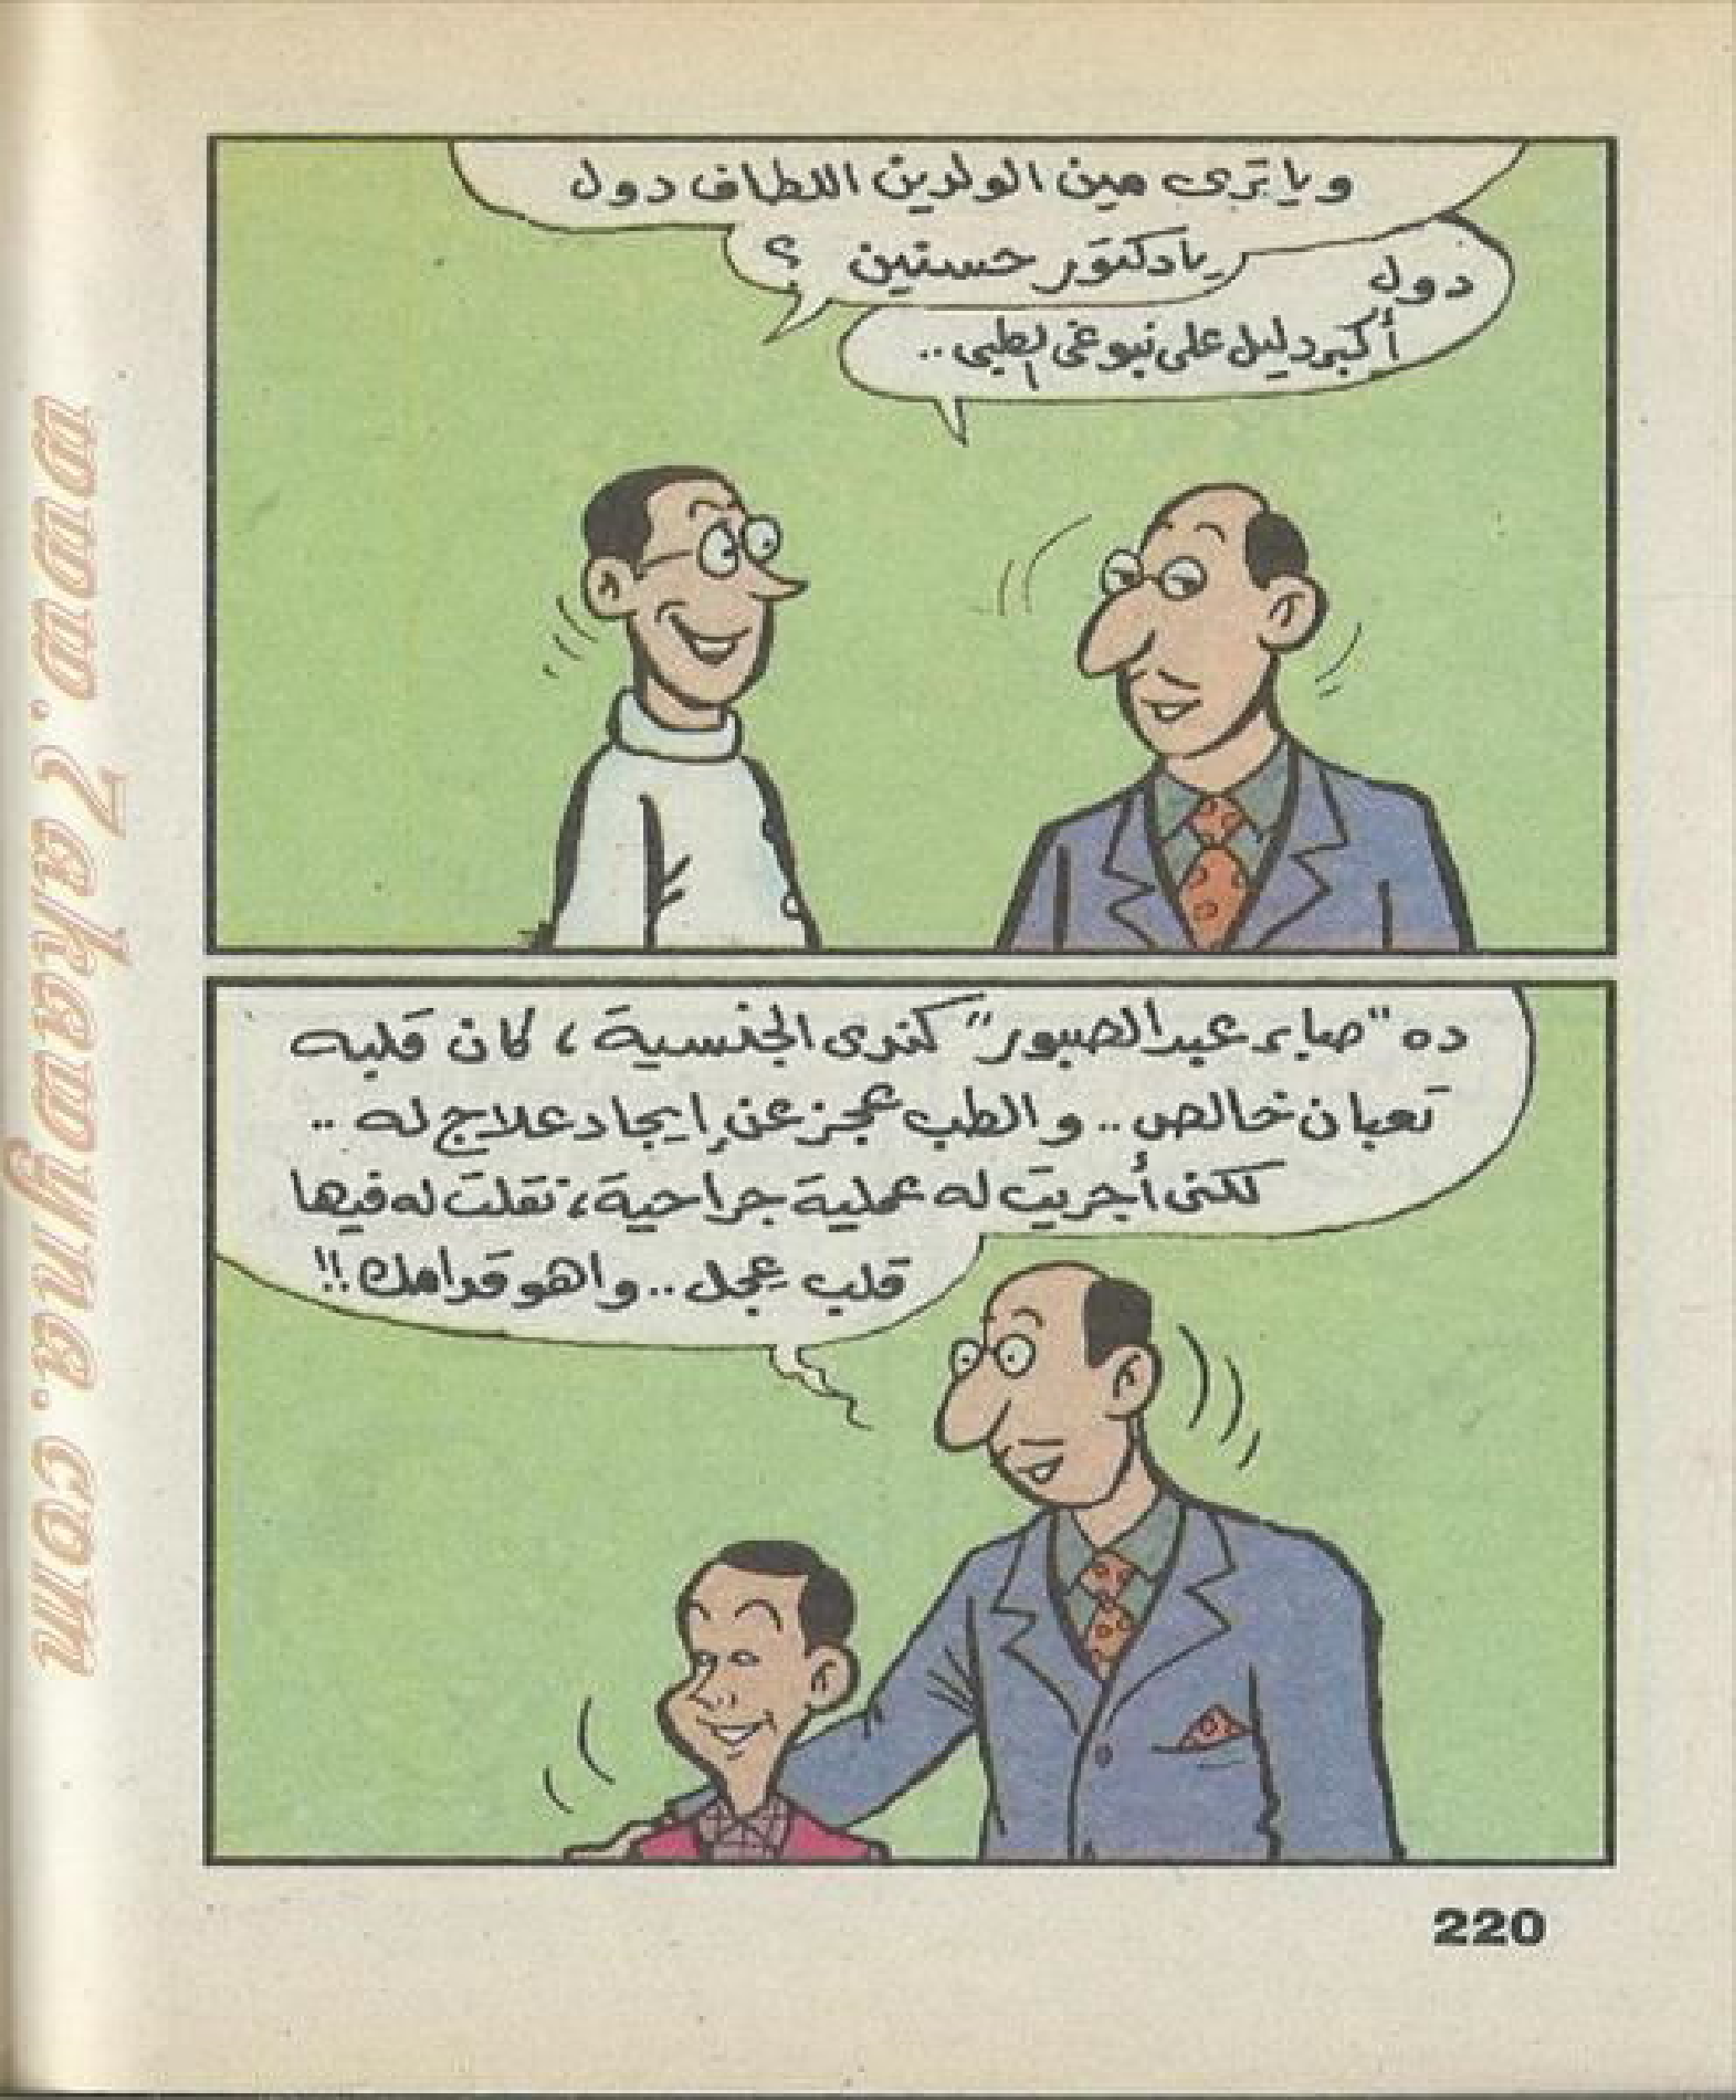 ويا تَرى مين الولدين اللطاف دول
يا دكتور حسنين ؟
دول
أكبر دليل على نبوغى الطبى ..
ده "صابر عبد الصبور" كندى الجنسية ، كان قلبه
تعبان خالص .. و الطب عجز عن إيجاد علاج له ..
لكنى أجريت له عملية جراحية ، نقلت له فيها
قلب عجل .. واهو قدامك !!
220
www.7akadyuna.com